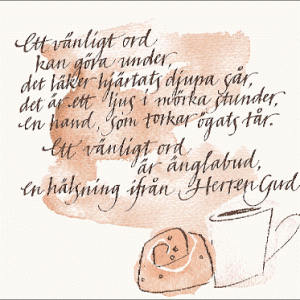 Ett vänligt ord
kan göra under,
det läker hjärtats djupa sår,
det är ett ljus i mörka stunder,
en hand, som torkar ögats tår.
Ett vänligt ord
är änglabud,
en hälsning ifrån Herren Gud